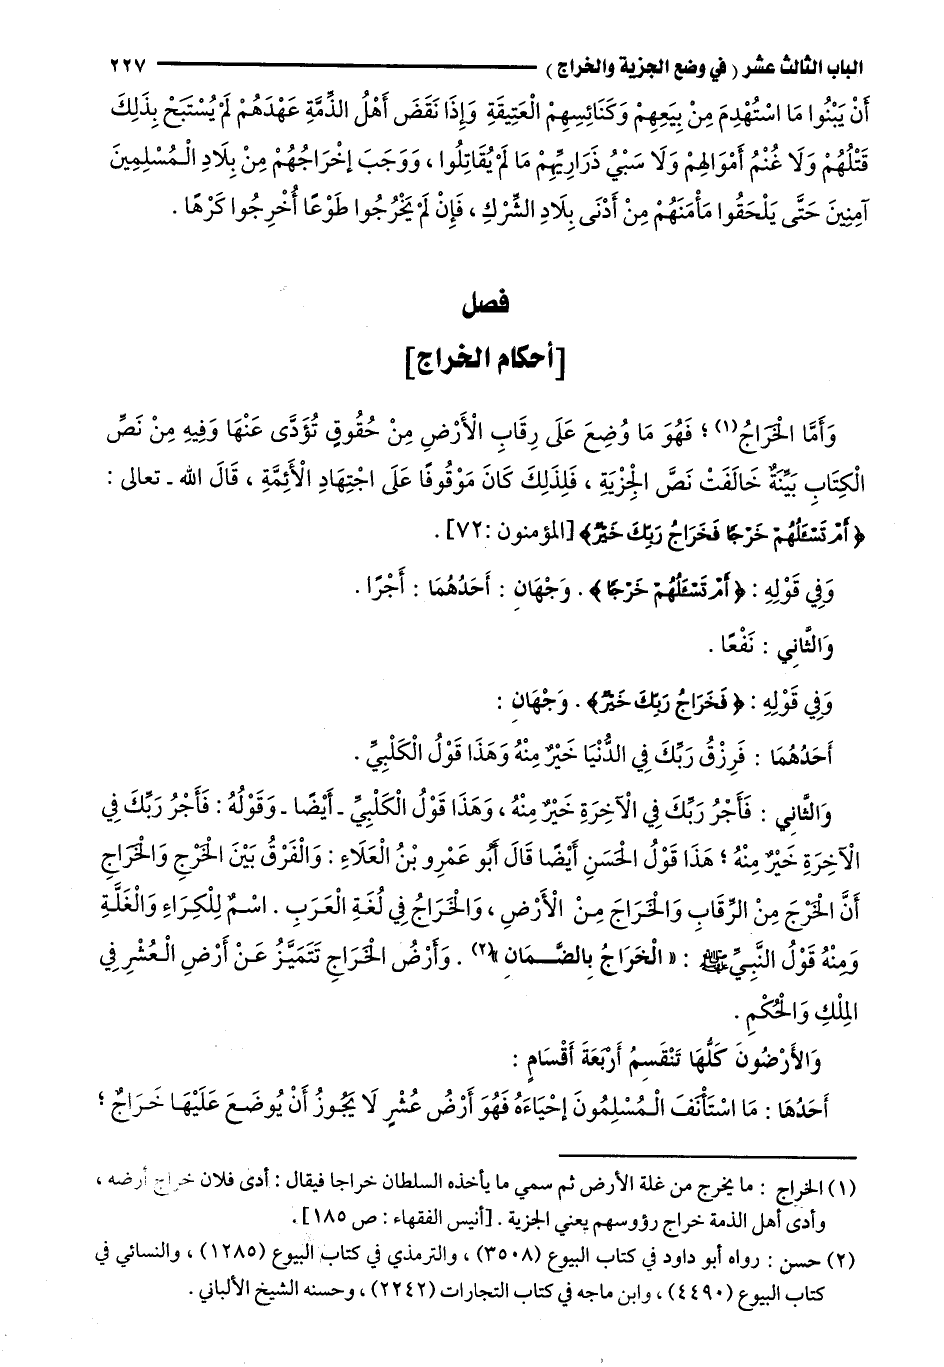 الباب الثالث عشر ( في وضع الجزية والخراج ) ٢٢٧
أَنْ يَبْنُوا مَا اسْتُهْدِمَ مِنْ بِيَعِهِمْ وَكَنَائِسِهِمْ الْعَتِيقَةِ وَإِذَا نَقَضَ أَهْلُ الذِّمَّةِ عَهْدَهُمْ لَمْ يُسْتَبَحْ بِذَلِكَ
قَتْلُهُمْ وَلَا غُنْمُ أَمْوَالِهِمْ وَلَا سَبْيُ ذَرَارِيِّهِمْ مَا لَمْ يُقَاتِلُوا ، وَوَجَبَ إخْرَاجُهُمْ مِنْ بِلَادِ الْمُسْلِمِينَ
آمِنِينَ حَتَّى يَلْحَقُوا مَأْمَنَهُمْ مِنْ أَدْنَى بِلَادِ الشِّرْكِ ، فَإِنْ لَمْ يَخْرُجُوا طَوْعًا أُخْرِجُوا كَرْهًا .
فصل
[أحكام الخراج]
وَأَمَّا الْخَرَاجُ(١) ؛ فَهُوَ مَا وُضِعَ عَلَى رِقَابِ الْأَرْضِ مِنْ حُقُوقٍ تُؤَدَّى عَنْهَا وَفِيهِ مِنْ نَصِّ
الْكِتَابِ بَيِّنَةٌ خَالَفَتْ نَصَّ الْجِزْيَةِ ، فَلِذَلِكَ كَانَ مَوْقُوفًا عَلَى اجْتِهَادِ الْأَئِمَّةِ ، قَالَ الله ـ تعالى :
﴿ أَمْ تَسْـَٔلُهُمْ خَرْجًا فَخَرَاجُ رَبِّكَ خَيْرٌ ﴾ [المؤمنون :٧٢] .
وَفِي قَوْلِهِ : ﴿ أَمْ تَسْـَٔلُهُمْ خَرْجًا ﴾ . وَجْهَانِ : أَحَدُهُمَا : أَجْرًا .
وَالثَّانِي : نَفْعًا .
وَفِي قَوْلِهِ : ﴿ فَخَرَاجُ رَبِّكَ خَيْرٌ ﴾ . وَجْهَانِ :
أَحَدُهُمَا : فَرِزْقُ رَبِّكَ فِي الدُّنْيَا خَيْرٌ مِنْهُ وَهَذَا قَوْلُ الْكَلْبِيِّ .
وَالثَّانِي : فَأَجْرُ رَبِّكَ فِي الْآخِرَةِ خَيْرٌ مِنْهُ ، وَهَذَا قَوْلُ الْكَلْبِيِّ ـ أَيْضًا ـ وَقَوْلُهُ : فَأَجْرُ رَبِّكَ فِي
الْآخِرَةِ خَيْرٌ مِنْهُ ؛ هَذَا قَوْلُ الْحَسَنِ أَيْضًا قَالَ أَبُو عَمْرِو بْنُ الْعَلَاءِ : وَالْفَرْقُ بَيْنَ الْخَرْجِ وَالْخَرَاجِ
أَنَّ الْخَرْجَ مِنْ الرِّقَابِ وَالْخَرَاجَ مِنْ الْأَرْضِ ، وَالْخَرَاجُ فِي لُغَةِ الْعَرَبِ . اسْمٌ لِلْكِرَاءِ وَالْغَلَّةِ
وَمِنْهُ قَوْلُ النَّبِيِّ ﷺ : « الْخَرَاجُ بِالضَّمَانِ »(٢) . وَأَرْضُ الْخَرَاجِ تَتَمَيَّزُ عَنْ أَرْضِ الْعُشْرِ فِي
الْمِلْكِ وَالْحُكْمِ .
وَالْأَرْضُونَ كُلُّهَا تَنْقَسِمُ أَرْبَعَةَ أَقْسَامٍ :
أَحَدُهَا : مَا اسْتَأْنَفَ الْمُسْلِمُونَ إحْيَاءَهُ فَهُوَ أَرْضُ عُشْرٍ لَا يَجُوزُ أَنْ يُوضَعَ عَلَيْهَا خَرَاجٌ ؛
(١) الخراج : ما يخرج من غلة الأرض ثم سمي ما يأخذه السلطان خراجا فيقال : أدى فلان خراج أرضه ،
وأدى أهل الذمة خراج رؤوسهم يعني الجزية . [أنيس الفقهاء : ص ١٨٥] .
(٢) حسن : رواه أبو داود في كتاب البيوع (٣٥٠٨) ، والترمذي في كتاب البيوع (١٢٨٥) ، والنسائي في
كتاب البيوع (٤٤٩٠) ، وابن ماجه في كتاب التجارات (٢٢٤٢) ، وحسنه الشيخ الألباني .